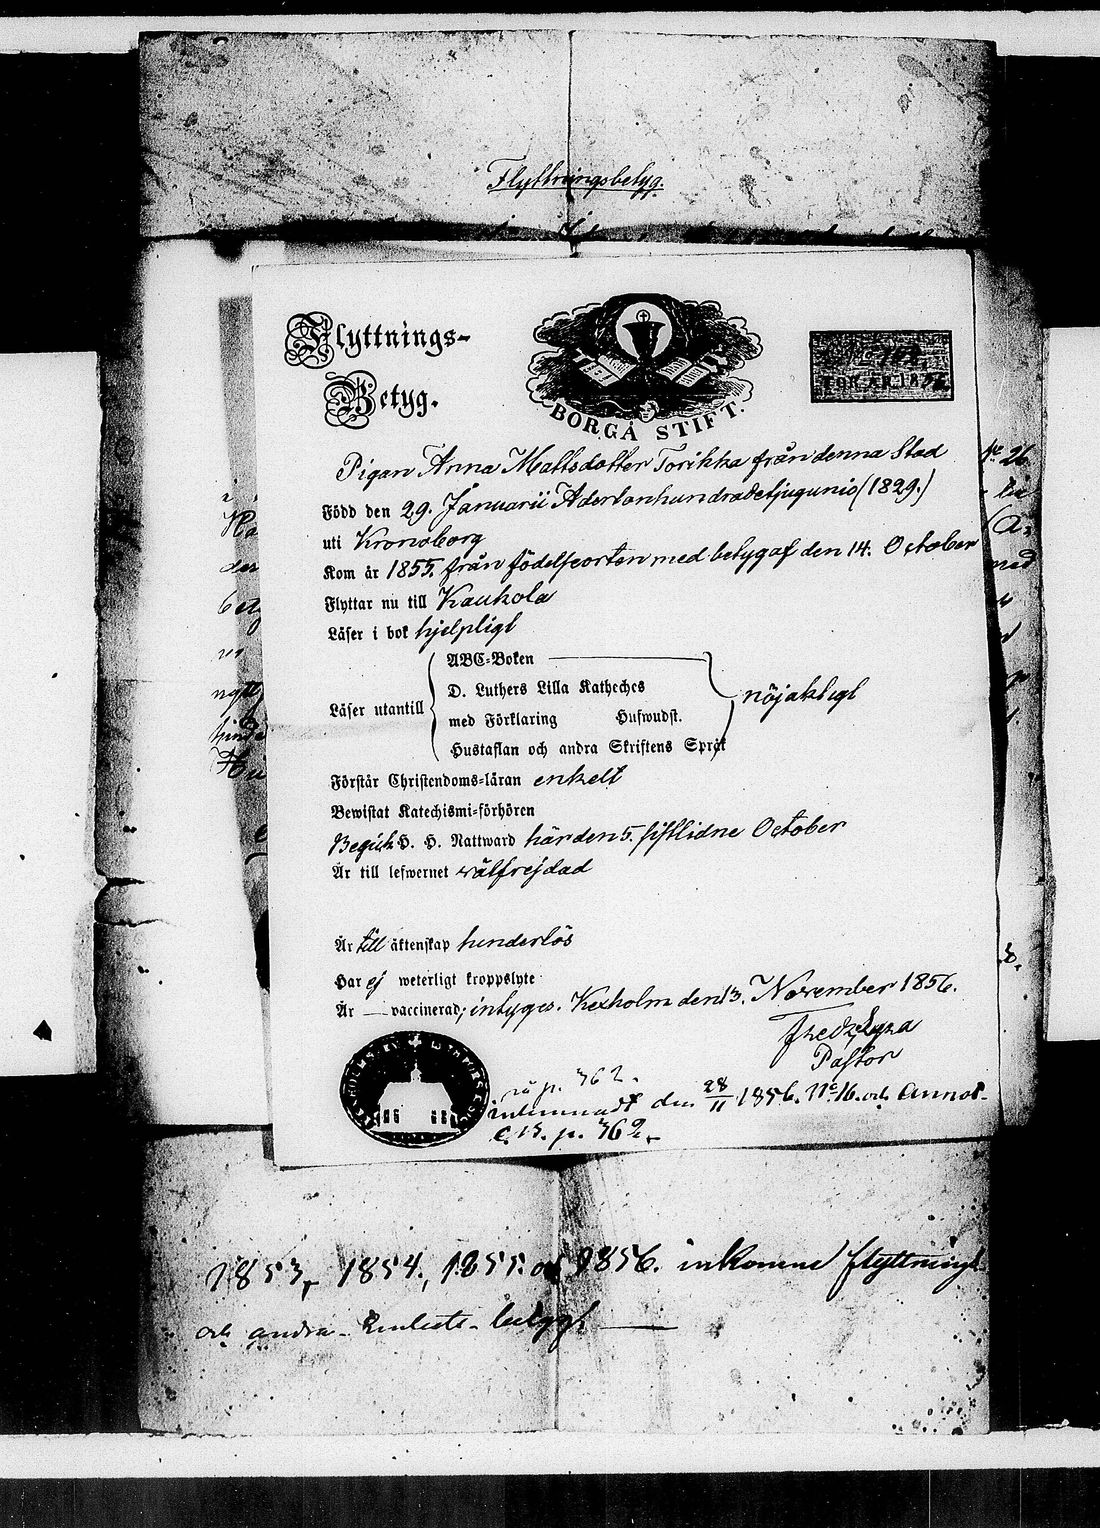 Flyttningsbetyg.
Flyttnings-
Betyg.
BORGÅ STIFT.
FÖR ÅR 1856.
Pigan Anna Mattsdotter Torikka från denna Stad
Född den 29. Januarii Adertonhundradetjugunio (1829.)
uti Kronoborg
Kom år 1855. från födelseorten med betyg af den 14. October
Flyttar nu till Kaukola
Läser i bok hjelpligt
ABC-Boken
D. Luthers Lilla Katheches
Läser utantill
med Förklaring Huswudst.
nöjaktigt
Hustaflan och andra Skriftens Språk
Förstår Christendoms-läran enkelt
Bewistat Katechismi-förhören
Begick H. H. Nattward här den 5. sistlidne October
Är till lefwernet wälfrejdad
Är till äktenskap hinderlös
Har ej weterligt kroppslyte
Är — vaccinerad; intygas. Kexholm den 13. November 1856.
Pastor
p. 762.
inlemnadt den 28/11 1856. No 16. och Annot.
p. 762.
1853, 1854, 1855 och 1856. inkomne flyttnings
och andra